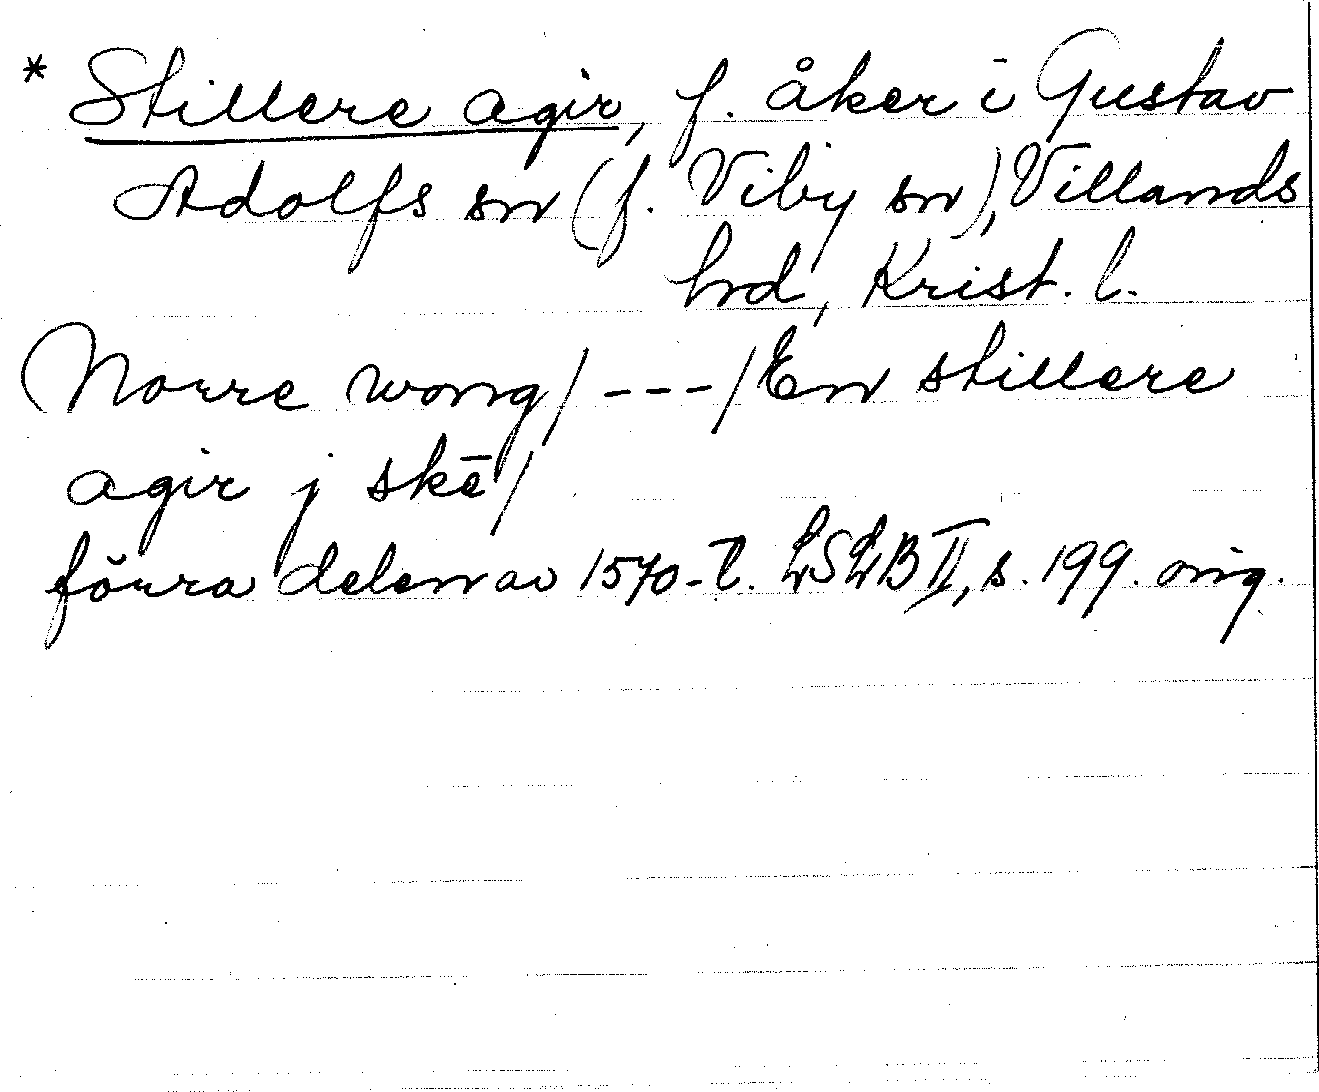 * Stillere agir, f. åker i Gustav
Adolfs sn (f. Viby sn), Villands
hd, Krist. l.
Norre wong/ --- /En stillere
agir j skē/
förra delen av 1570-t. LSLB II, s. 199. orig.